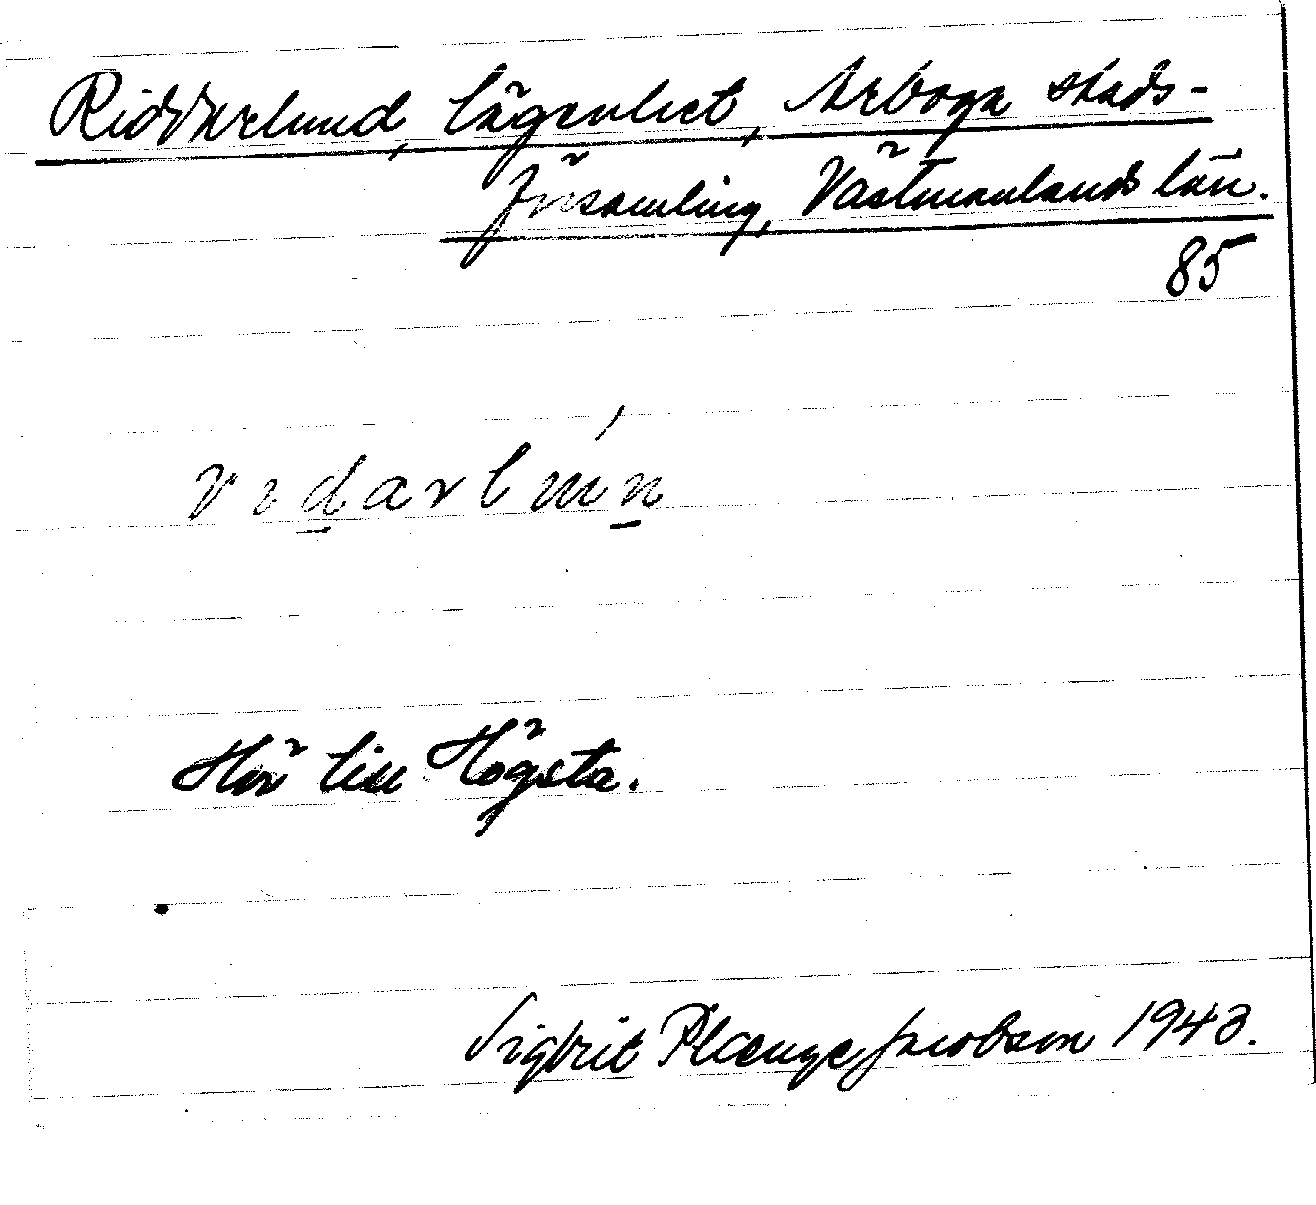 Ridderlund, lägenhet, Arboga stads-
församling, Västmanlands län.
85
rıdarluń
Hör till Högsta.
Sigbrit Plænge Jacobson 1943.